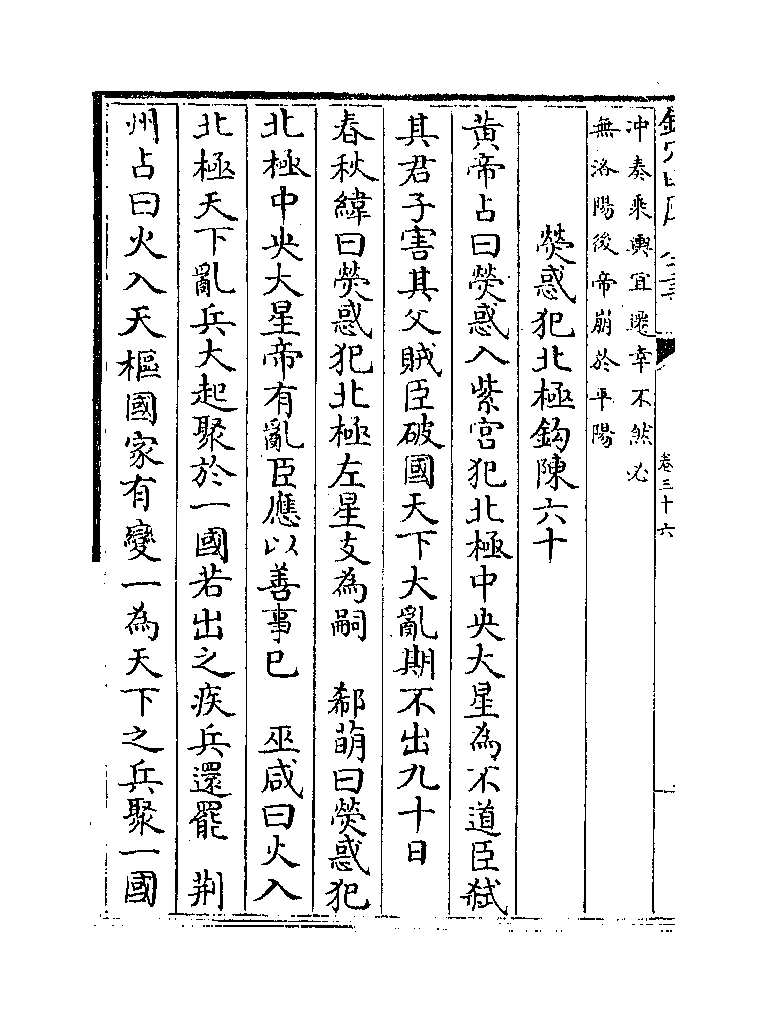 冲奏乘輿宜遷幸不然必
無洛陽後帝崩於平陽
熒惑犯北極鈎陳六十
黄帝占曰熒惑入紫宫犯北極中央大星為不道臣弑
其君子害其父賊臣破國天下大亂期不出九十日
春秋緯曰熒惑犯北極左星支為嗣　郗萌曰熒惑犯
北極中央大星帝有亂臣應以善事已　巫咸曰火入
北極天下亂兵大起聚於一國若出之疾兵還罷　荆
州占曰火入天樞國家有變一為天下之兵聚一國
卷三十六